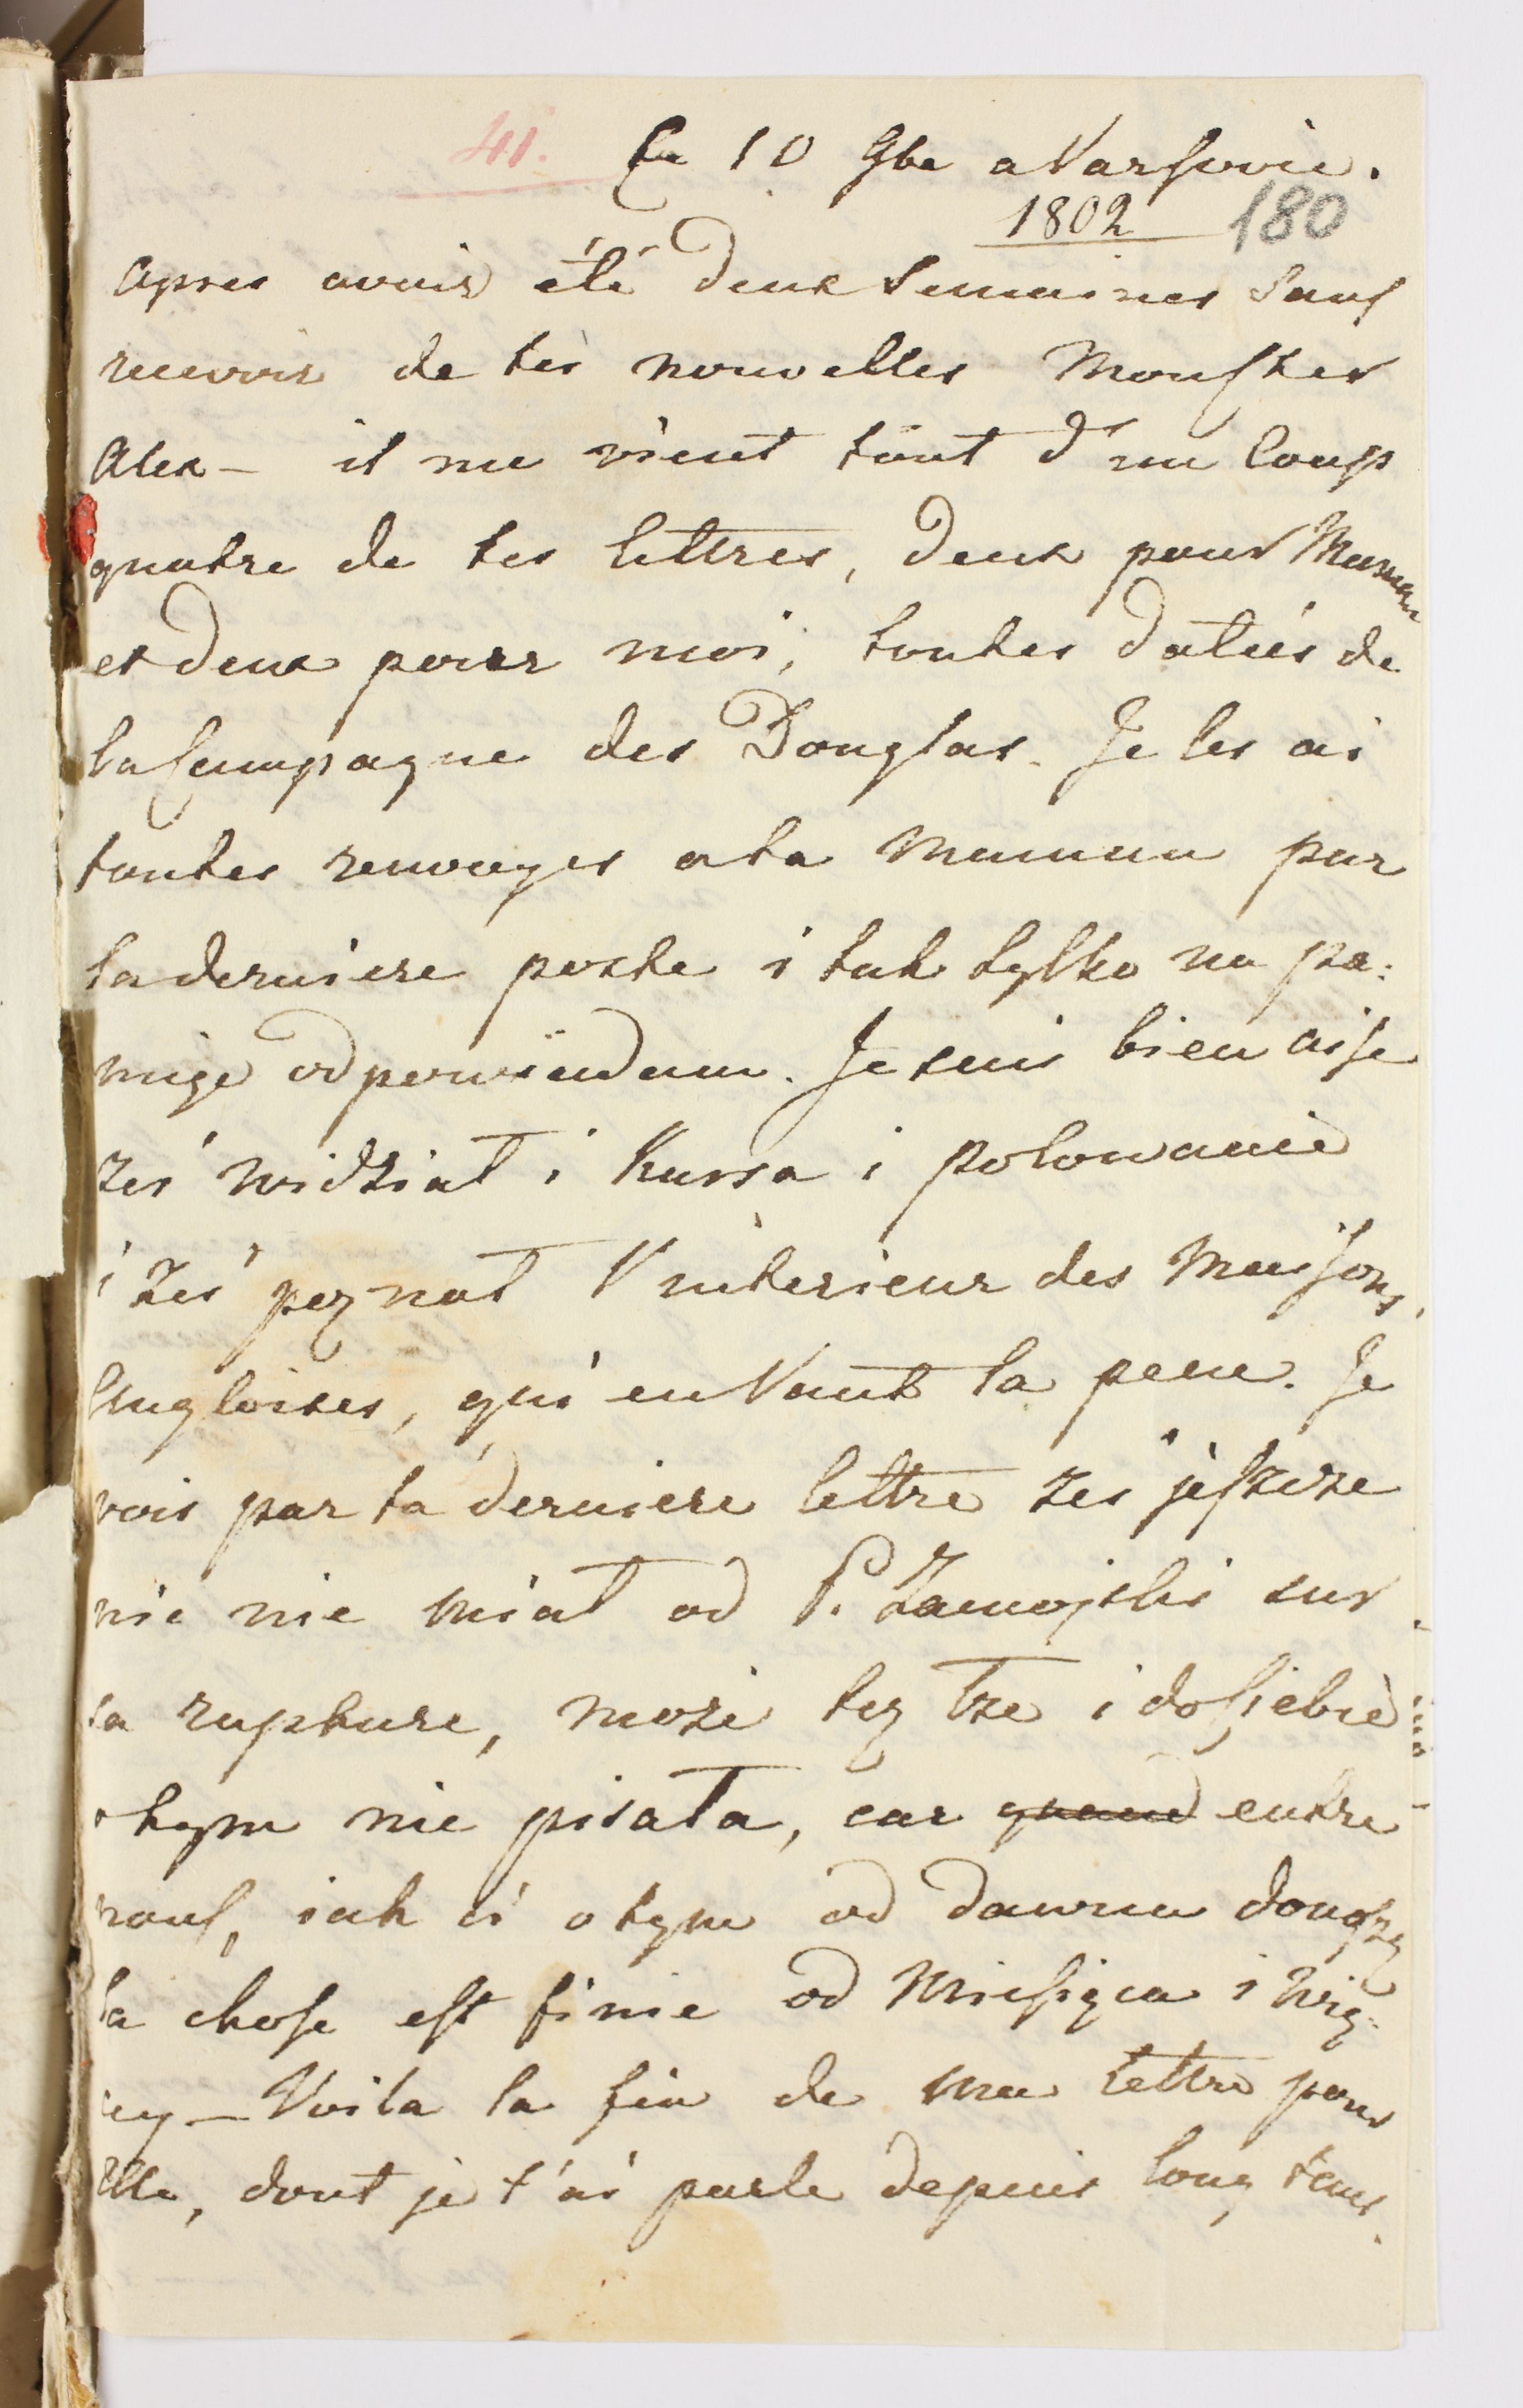 41. Ce 10 9bre a Varsovie.
1802 180
Apres avoir été deux Semaines Sans
recevoir de tes nouvelles Monster
Alex – il me vient tout d'un Coup
quatre de tes lettres, deux pour Maman
et deux pour moi, toutes datées de
la Campagne des Douglas. Je les ai
toutes renvoyes a ta Maman par
la derniere poste i tak tylko na pa:
mięć odpowiadam. Je suis bien aise
żeś widział i Kursa i polowanie
i żeś poznał l'interieur des Maisons
Angloises, qui en Vaut la peine. Je
vois par ta derniere lettre żeś jeszcze
nic nie miał od P. Zamojski sur
sa rupture, może też Ona i do siebie
o tym nie pisała, car quand entre
nous, iak ci o tym od dawna donoszę
la chose est finie od Miesiąca i wię-
cey – Voila la fin de ma lettre pour
Elle, dont je t'ai parlé depuis long tems.